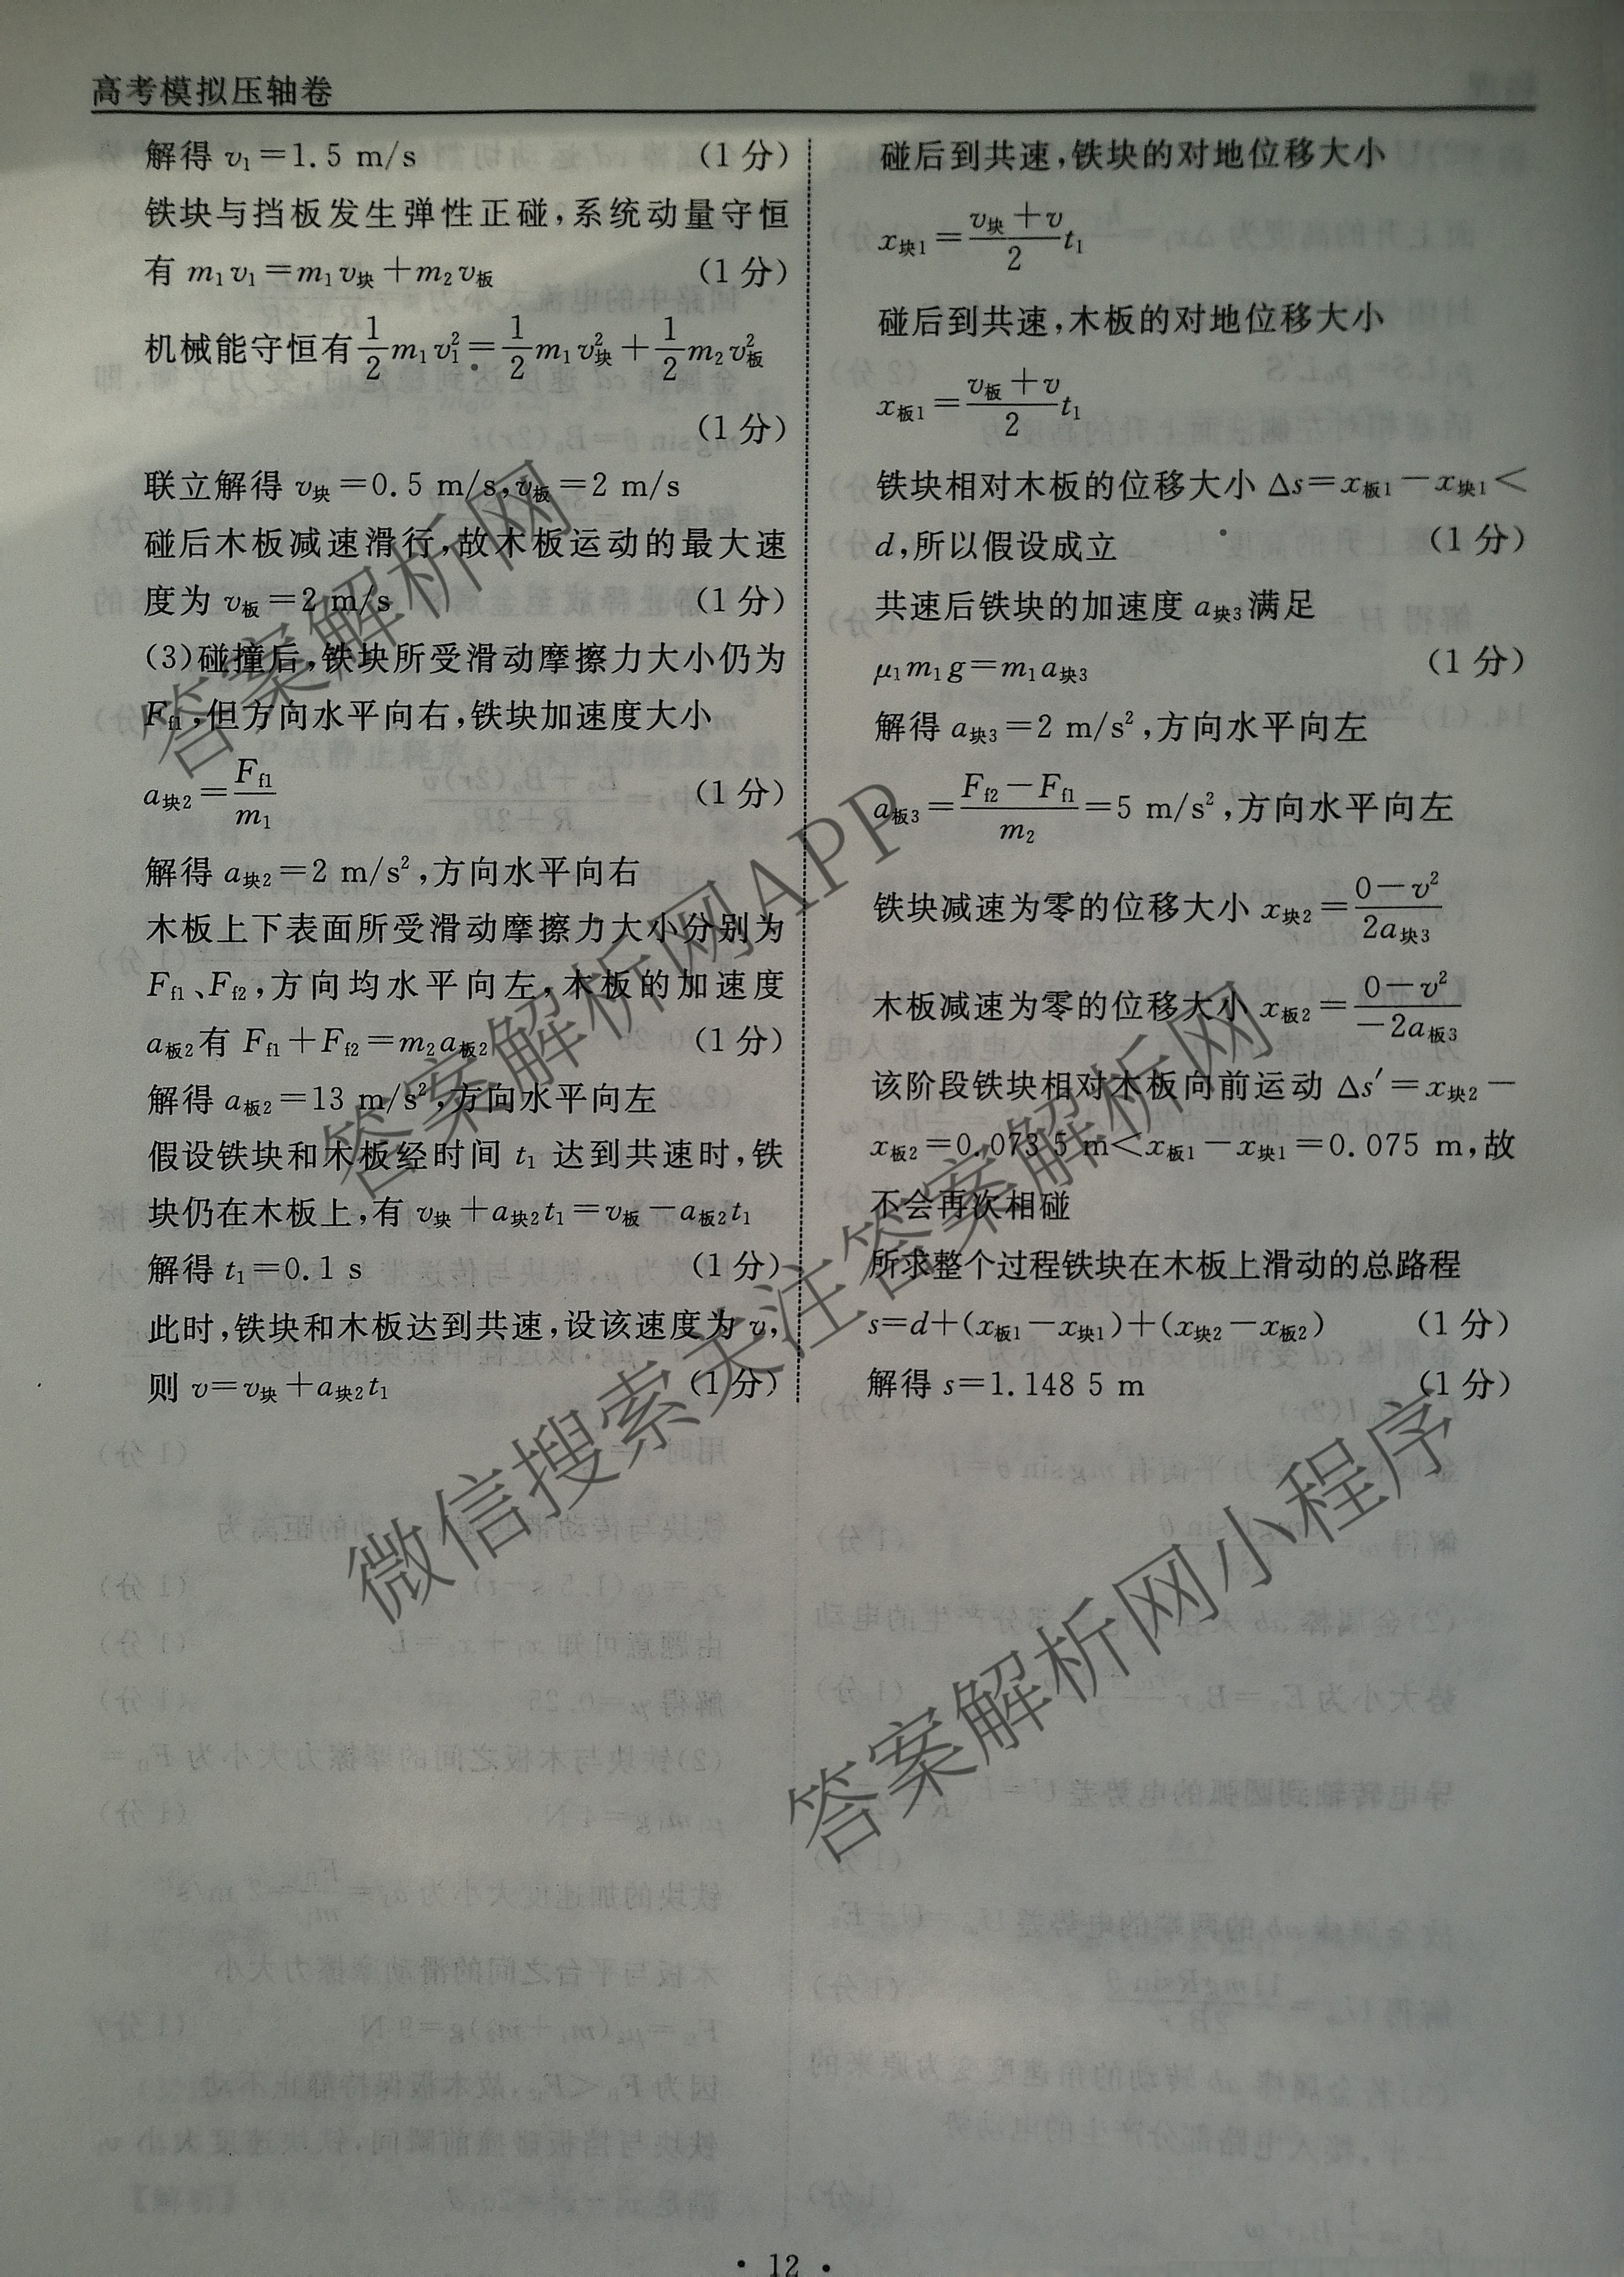 高考模拟压轴卷
解得 v₁=1.5 m/s (1分)
铁块与挡板发生弹性正碰,系统动量守恒
有 m₁v₁=m₁v块+m₂v板 (1分)
机械能守恒有 1/2 m₁v₁²=1/2 m₁v块²+1/2 m₂v板²
(1分)
联立解得 v块=0.5 m/s,v板=2 m/s
碰后木板减速滑行,故木板运动的最大速
度为 v板=2 m/s (1分)
(3)碰撞后,铁块所受滑动摩擦力大小仍为
Ff1,但方向水平向右,铁块加速度大小
a块2=Ff1/m₁ (1分)
解得 a块2=2 m/s²,方向水平向右
木板上下表面所受滑动摩擦力大小分别为
Ff1、Ff2,方向均水平向左,木板的加速度
a板2有 Ff1+Ff2=m₂a板2 (1分)
解得 a板2=13 m/s²,方向水平向左
假设铁块和木板经时间 t₁ 达到共速时,铁
块仍在木板上,有 v块+a块2t₁=v板-a板2t₁
解得 t₁=0.1 s (1分)
此时,铁块和木板达到共速,设该速度为 v,
则 v=v块+a块2t₁ (1分)
碰后到共速,铁块的对地位移大小
x块1=(v块+v)/2 t₁
碰后到共速,木板的对地位移大小
x板1=(v板+v)/2 t₁
铁块相对木板的位移大小 Δs=x板1-x块1<
d,所以假设成立 (1分)
共速后铁块的加速度 a块3满足
μ₁m₁g=m₁a块3 (1分)
解得 a块3=2 m/s²,方向水平向左
a板3=(Ff2-Ff1)/m₂=5 m/s²,方向水平向左
铁块减速为零的位移大小 x块2=(0-v²)/(2a块3)
木板减速为零的位移大小 x板2=(0-v²)/(-2a板3)
该阶段铁块相对木板向前运动 Δs′=x块2-
x板2=0.073 5 m<x板1-x块1=0.075 m,故
不会再次相碰
所求整个过程铁块在木板上滑动的总路程
s=d+(x板1-x块1)+(x块2-x板2) (1分)
解得 s=1.148 5 m (1分)
答案解析网
答案解析网APP
微信搜索关注答案解析网
答案解析网小程序
· 12 ·